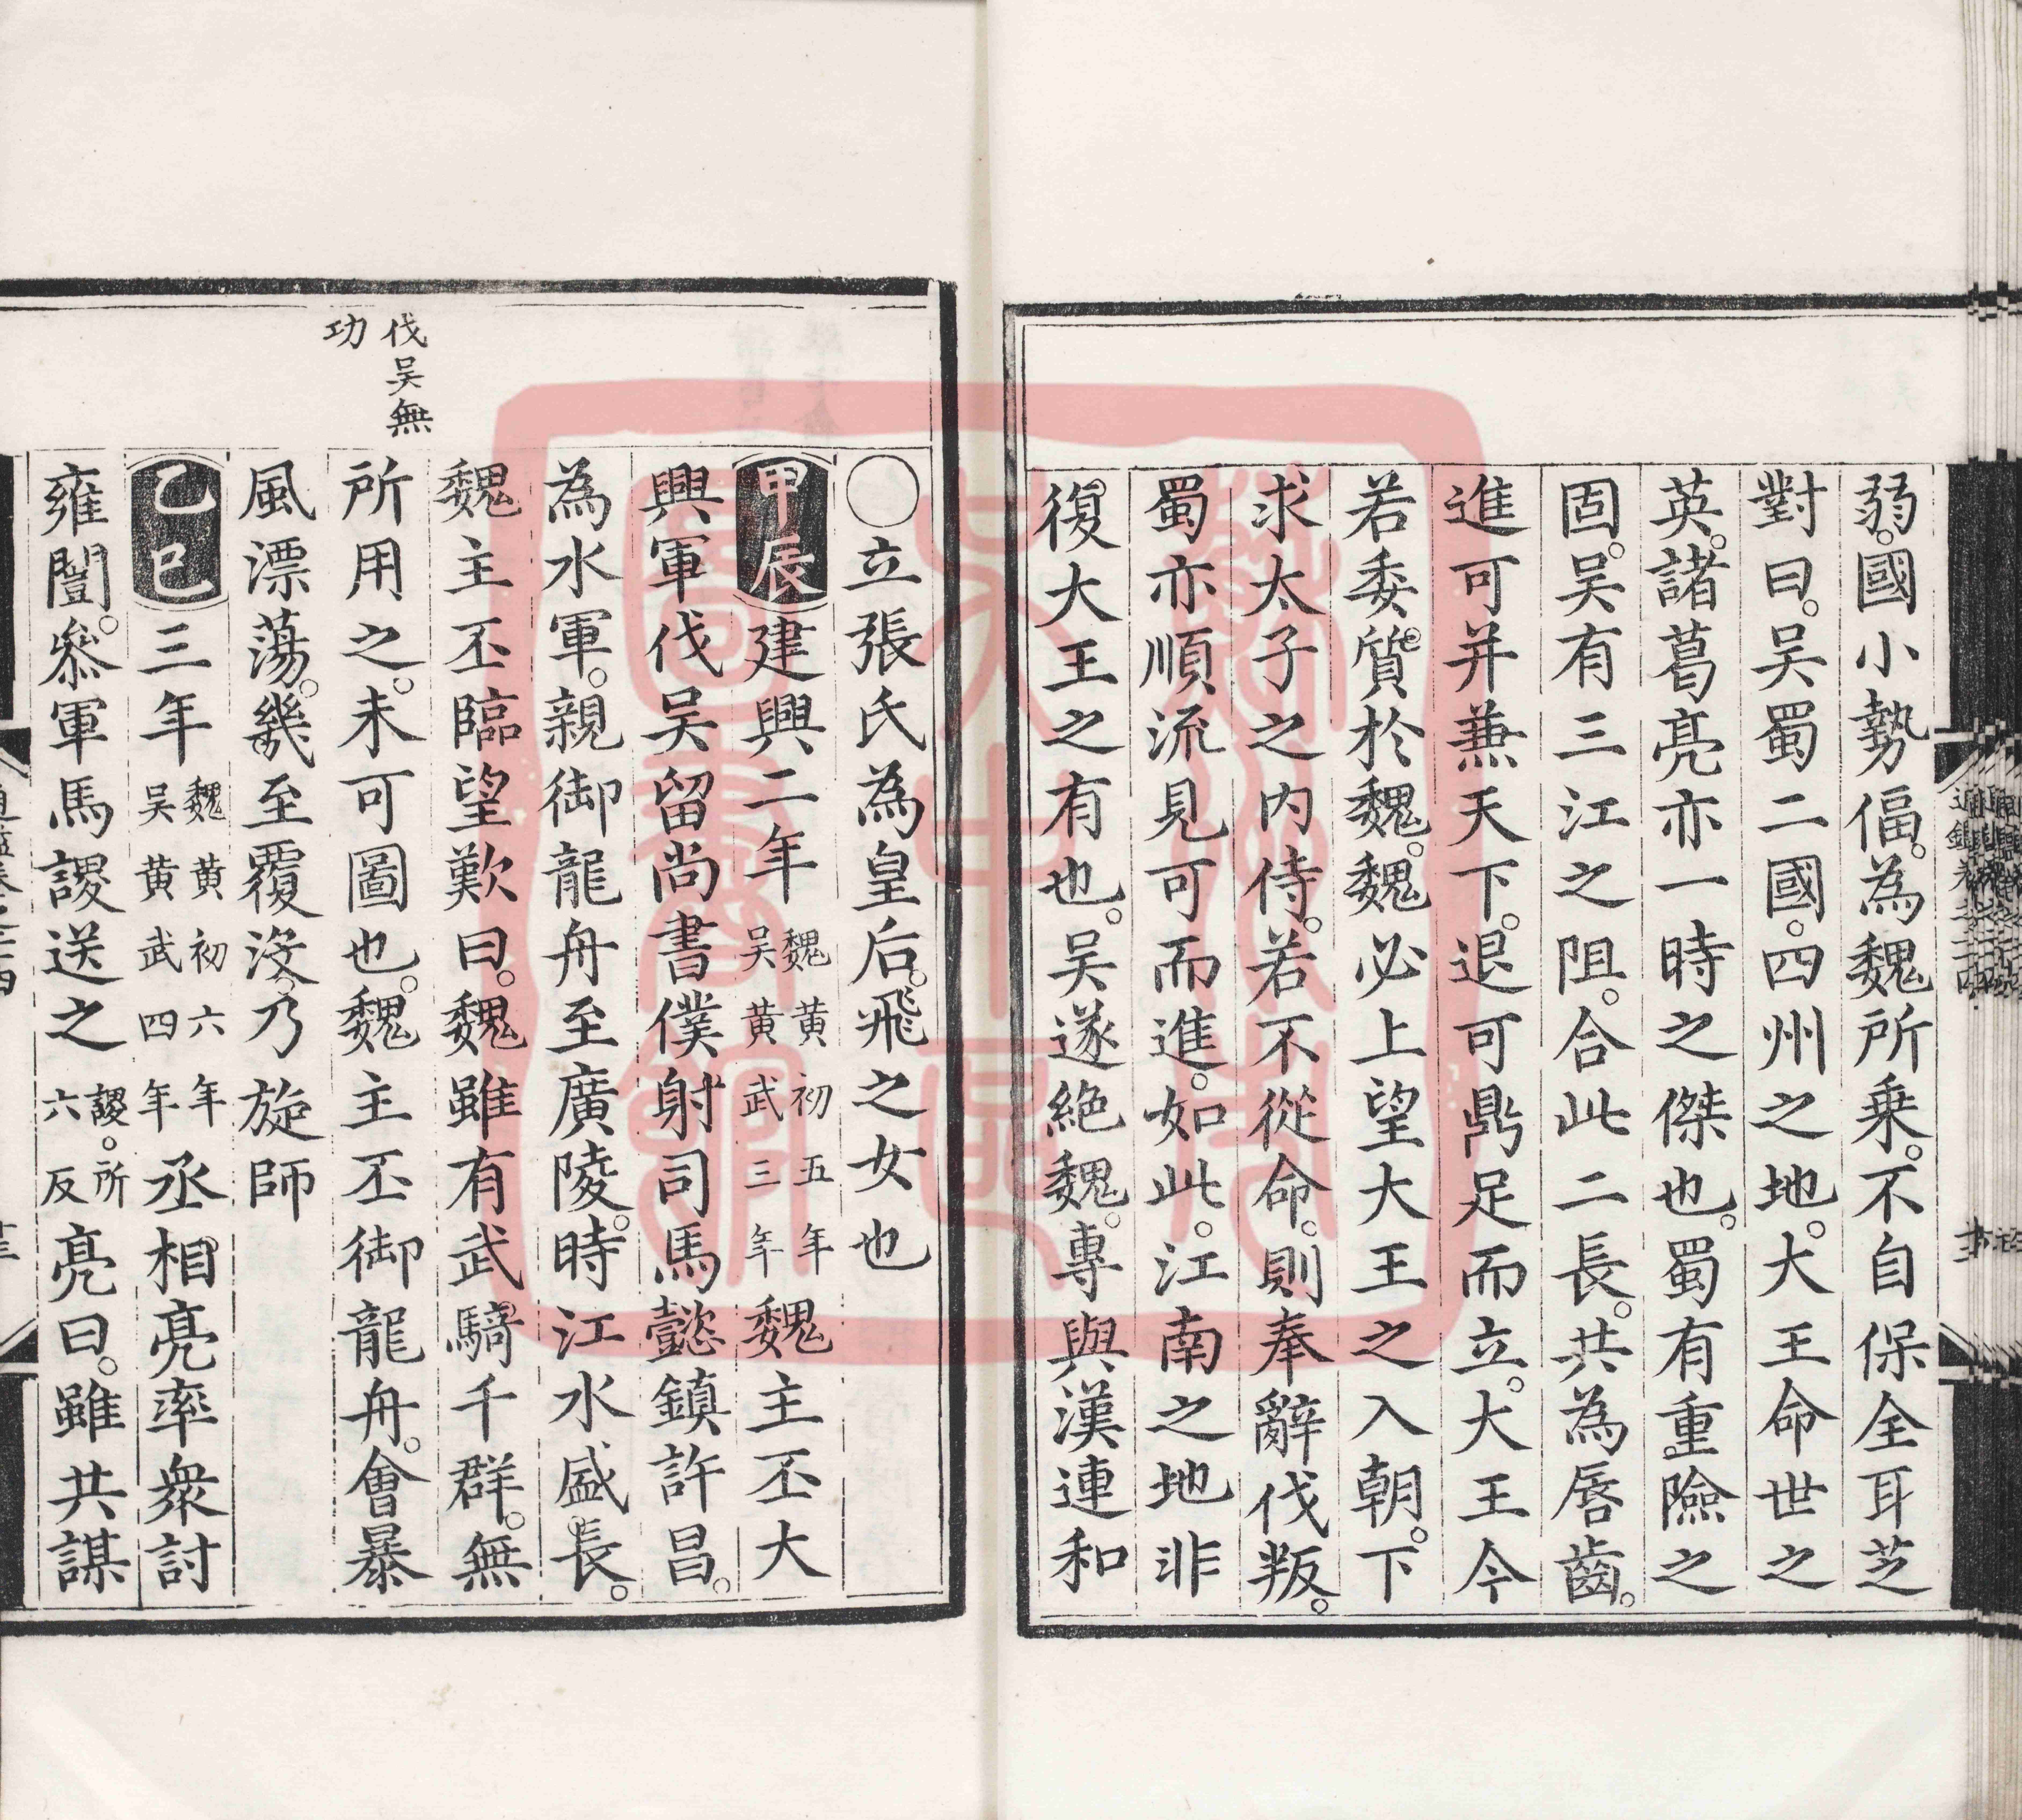 弱。國小勢偪。為魏所乗。不自保全耳芝
對曰。吴蜀二國。四州之地。大王命世之
英。諸葛亮亦一時之傑也。蜀有重險之
固。吴有三江之阻。合此二長。共為唇齒。
進可并兼天下。退可鼎足而立。大王今
若委質於魏。魏必上望大王之入朝。下
求太子之内侍。若不從命。則奉辭伐叛。
蜀亦順流見可而進。如此。江南之地非
復大王之有也。吴遂絶魏。專與漢連和
〇立張氏為皇后。飛之女也
甲辰建興二年魏黄初五年吴黄武三年魏主丕大
興軍伐吴留尚書僕射司馬懿鎮許昌。
為水軍。親御龍舟至廣陵。時江水盛長。
魏主丕臨望歎曰。魏雖有武騎千群。無
伐吴無
功
所用之。未可圖也。魏主丕御龍舟。會暴
風漂蕩。幾至覆没。乃旋師
乙巳三年魏黄初六年吴黄武四年丞相亮率衆討
雍闓。叅軍馬謖送之謖。所六反亮曰。雖共謀